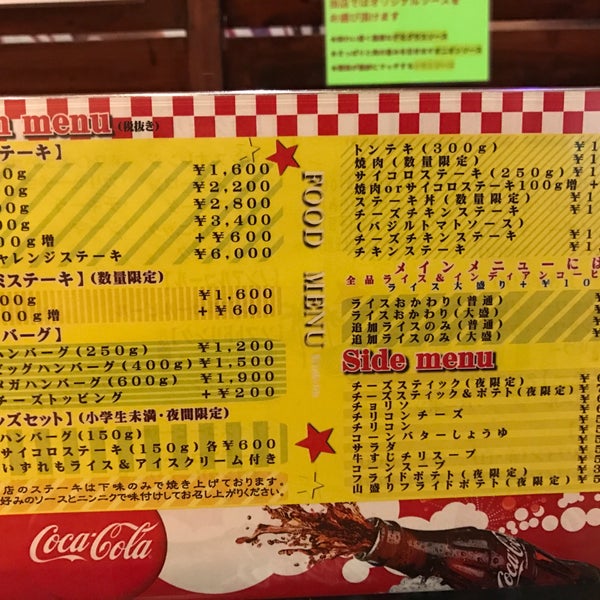 当店ではオリジナルソースを
お選び頂けます
n menu (税抜き)
テーキ】
0g ¥1,600
0g ¥2,200
0g ¥2,800
00g ¥3,400
00g増 +¥600
ャレンジステーキ ¥6,000
ミステーキ】(数量限定)
00g ¥1,600
00g増 +¥600
バーグ】
ハンバーグ(250g) ¥1,200
ッグハンバーグ(400g) ¥1,500
ガハンバーグ(600g) ¥1,900
チーズトッピング +¥200
ッズセット】(小学生未満・夜間限定)
ハンバーグ(150g)
サイコロステーキ(150g) 各¥600
いずれもライス&アイスクリーム付き
店のステーキは下味のみで焼き上げております。
好みのソースとニンニクで味付けしてお召し上がりください。
FOOD MENU
トンテキ(300g) ¥1
焼肉(数量限定) ¥1
サイコロステーキ(250g) ¥1
焼肉orサイコロステーキ100g増 +
ステーキ丼(数量限定) ¥1
チーズチキンステーキ ¥1
(バジルトマトソース)
チーズチキンステーキ ¥1
チキンステーキ ¥1
メインメニューには
全品 ライス&インディアンコーヒ
ライス大盛り+¥10
ライスおかわり(普通)
ライスおかわり(大盛)
追加ライスのみ(普通)
追加ライスのみ(大盛)
Side menu
チーズスティック(夜限定)
チーズスティック&ポテト(夜限定)
チョリソー
チリコンチーズ
チリコン
コーンバターしょうゆ
サラダ
牛すじチリスープ
コーンスープ
フライドポテト(夜限定)
山盛りフライドポテト(夜限定)
Coca-Cola
Coca-Cola